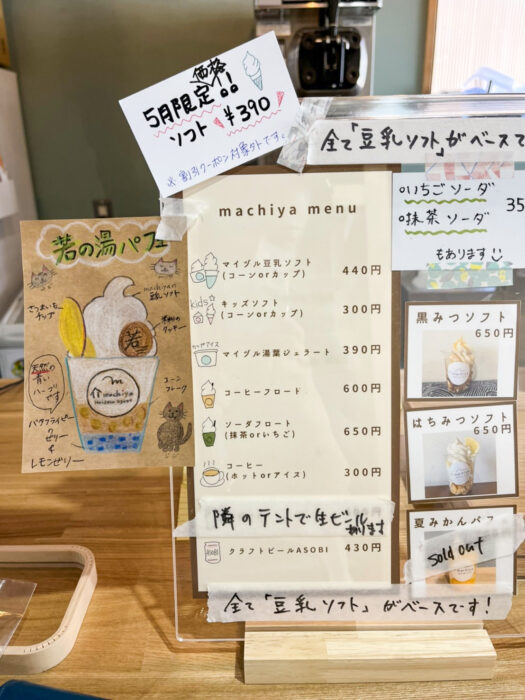 5月限定価格!!
ソフト ¥390
※割引クーポン対象外です。
全て「豆乳ソフト」がベースで
machiya menu
マイヅル豆乳ソフト
(コーンorカップ)
440円
kids
キッズソフト
(コーンorカップ)
300円
カップアイス
マイヅル湯葉ジェラート
390円
コーヒーフロート
600円
ソーダフロート
(抹茶orいちご)
650円
コーヒー
(ホットorアイス)
300円
隣のテントで生ビール
あります
ASOBI
クラフトビールASOBI
430円
全て「豆乳ソフト」がベースです!
いちごソーダ
抹茶ソーダ
35
もあります
黒みつソフト
650円
はちみつソフト
650円
夏みかんパフ
sold out
若の湯パフェ
machiyaの
豆乳ソフト
さつまいも
チップ
クッキー
若
machiya
コーン
フレーク
天然の
青い
ハーブ
です
バタフライピー
の
ゼリー
&
レモンゼリー